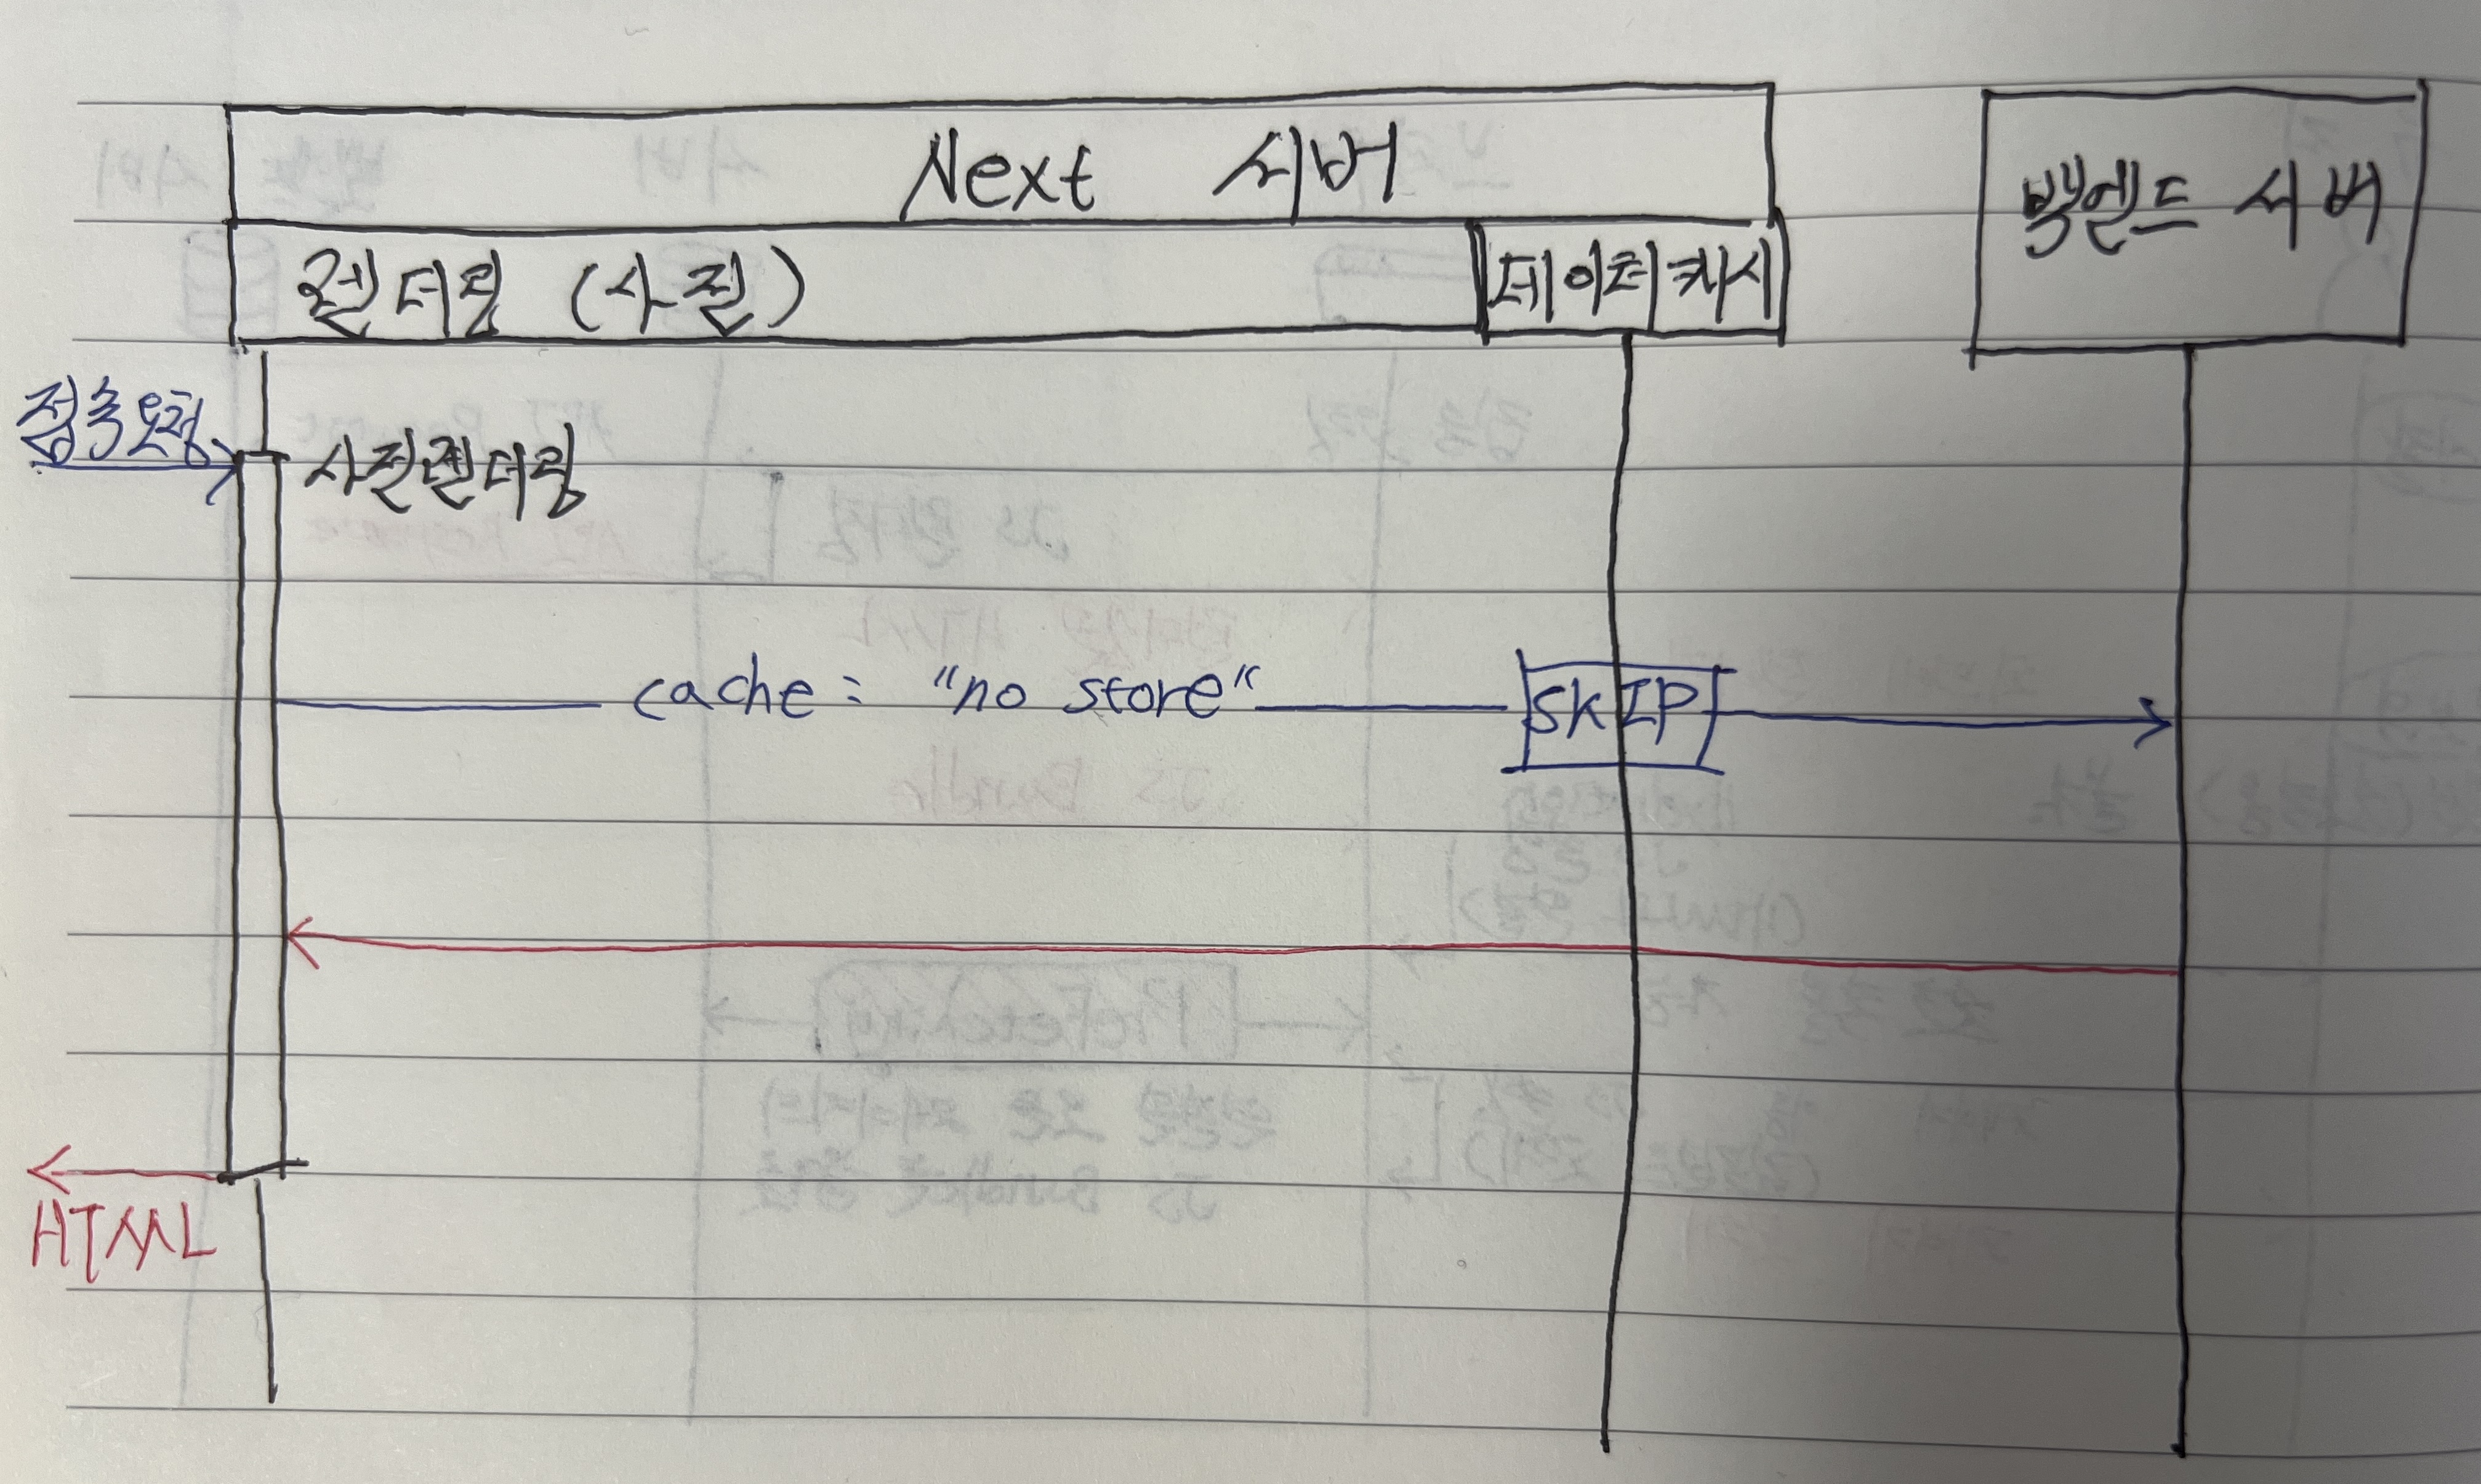 Next 서버
백엔드 서버
렌더링 (사전)
데이터 캐시
접속요청
사전렌더링
cache : "no store"
SKIP
HTML